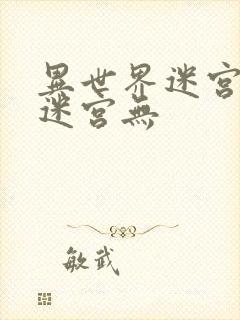 異世界迷宮
迷宮無
敏武